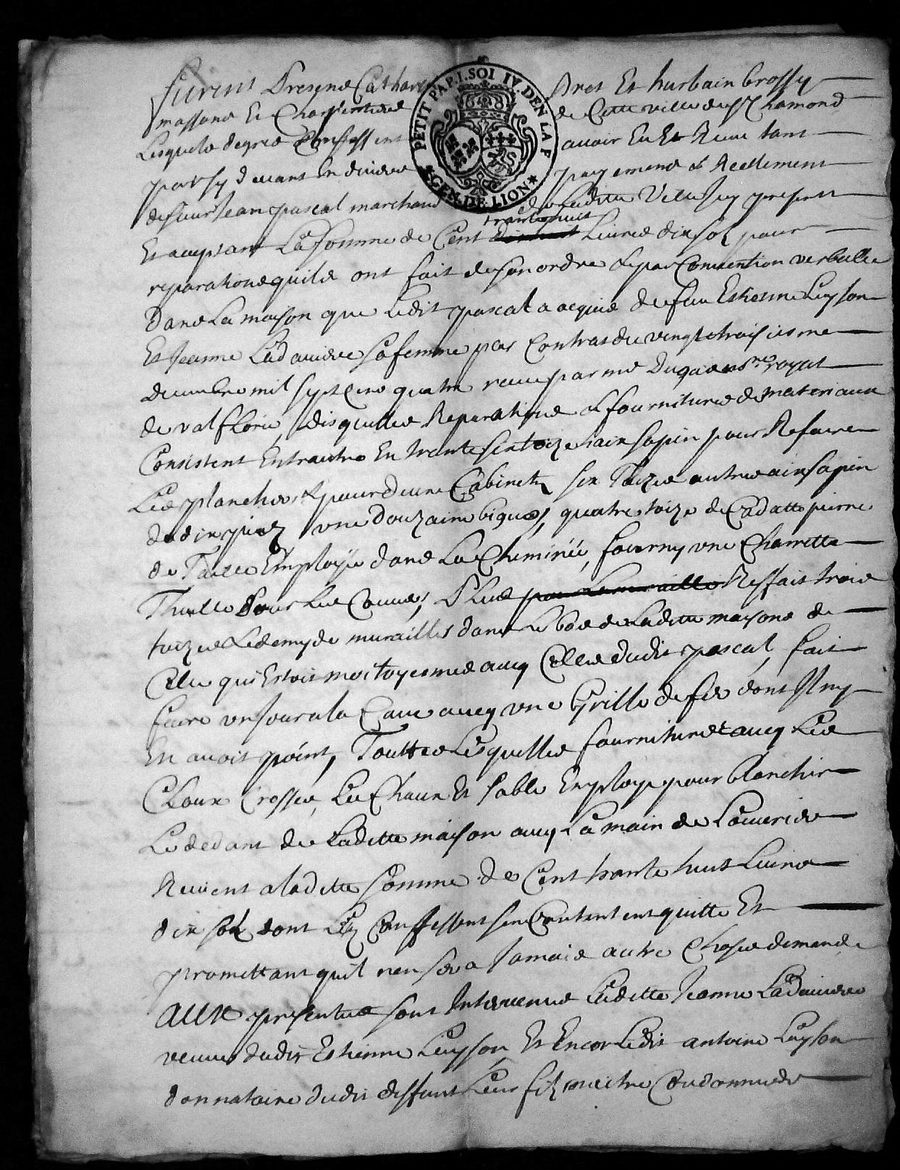 furent presens Cathar Pret Et hurbain brossy
massons Et Charpentiers de Cette ville de St Chamond
Lesquels de gres Confessent avoir Eu Et Receu tant
par cy devant En diviers payemens & Reellement
de sieur Jean pascal marchand de Ladite Ville Icy present
Et aceptant La somme de Cent trante huict Livres dix sol pour
reparations quils ont fait de son ordre & par Convention verballe
Dans La maison que Ledit pascal a acquis de feu Estienne Luyson
Et Jeanne Ladaviere sa femme par Contrat du vingt troisiesme
Decembre mil sept cens quatre receu par me Duguet no.re royal
de valflorie, Lesquelles Reparations & fournitures de materiaux
Consistent Entrautre En trante six toize ais sapin pour Refaire
Les planchers & pour d'une Cabinet, six Toize autre ais sapin
une Douzaine bigues, quatre toize de Cadatte pierre
de Taille Employé dans La Cheminée, fourny une Charrette
Thuille pour Le Couvert, Plus Reffait trois
toizes Et demy de murailles dans Le bas de Ladite maison & de
Celle qui Estoit moitoyenne avec Celle dudit pascal, fait
faire un Jour a la Cave avec une Grille de fer dont Il ny
En avoit point, Touttes Lesquelles fournitures avec Les
Cloux Crosses, La Chaux Et sable Employé pour blanchir
Le dedant de Laditte maison avec La main de Louvriers
Revient a laditte somme de Cent trante huit Livres
dix sol dont Ils Confessent sen Contantent quitte Et
promettant quil nen sera Jamais autre Chose demandé
AUX presentes sont Intervenus Laditte Jeanne Ladaviere
veuve dudit Estienne Luyson Et Encor Ledit antoine Luyson
donnataire dudit deffunt Leur filz maitre Cordonnier
PETIT PAP. I. SOL IV. DEN. LA F.
GEN. DE LION